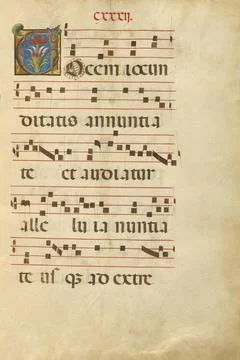 cxxxii.
Vocem iocun
ditatis annuntia
te et audiatur
alle lu ia nuntia
te us qȝ ad extre